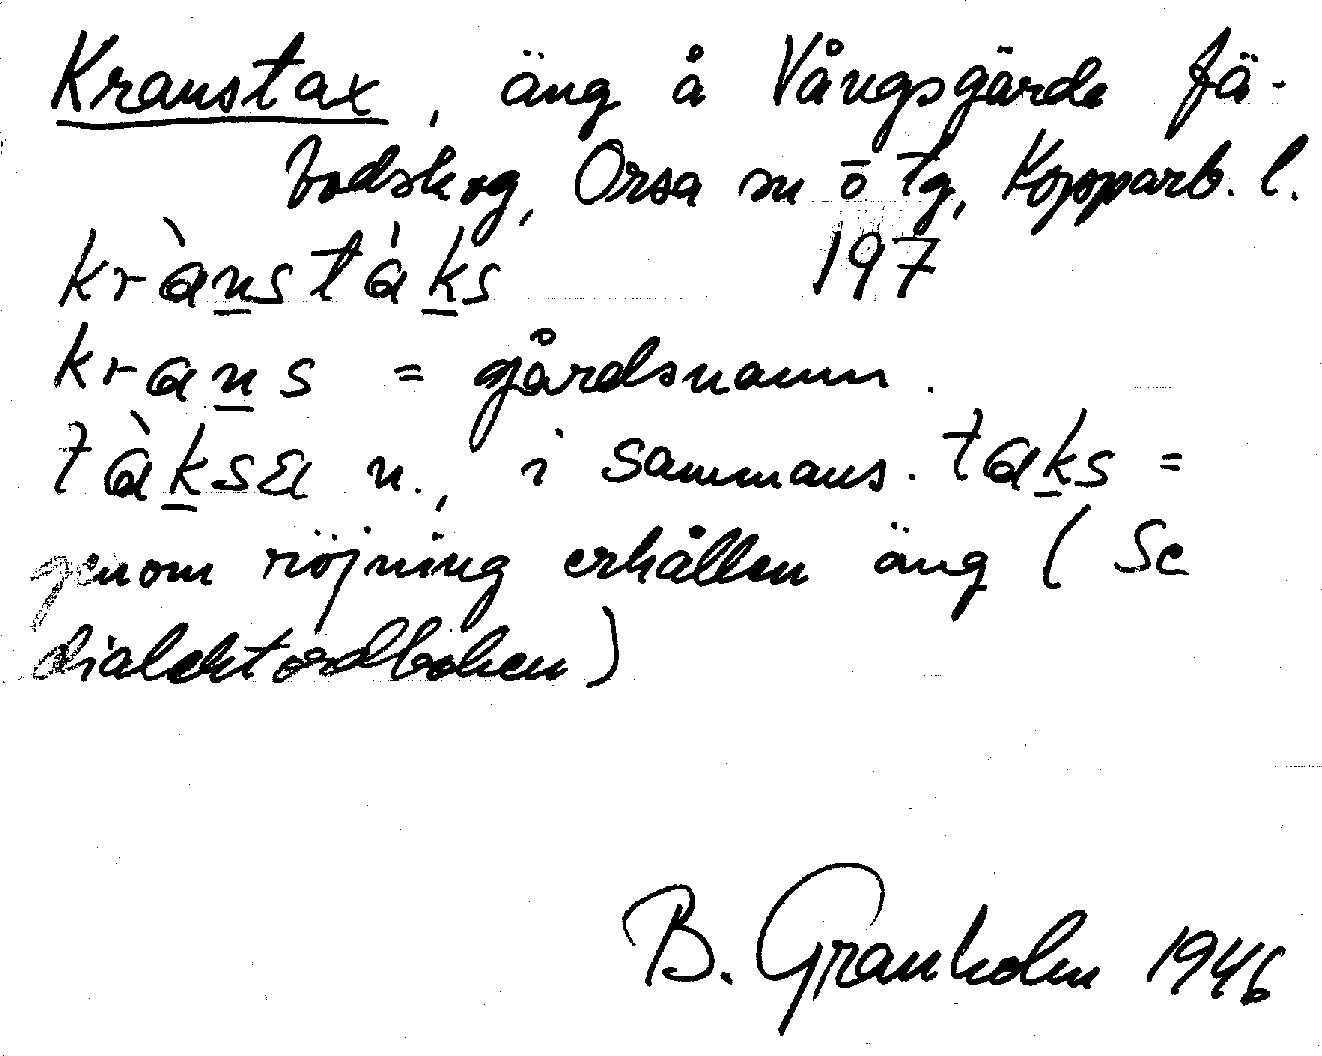 Kranstax, äng å Vångsgärde fä-
bodskog, Orsa sn o tg, Kopparb. l.
krànstàks 197
krans = gårdsnamn.
tàksa n., i sammans. taks =
genom röjning erhållen äng (Se
dialektordboken)
B. Granholm 1946